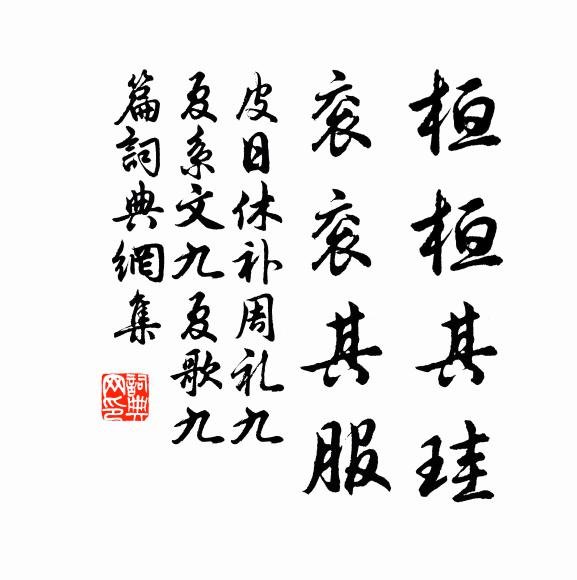 桓桓其珪
衮衮其服
皮日休补周礼九
夏系文九夏歌九
篇詞典網集
詞典
网印